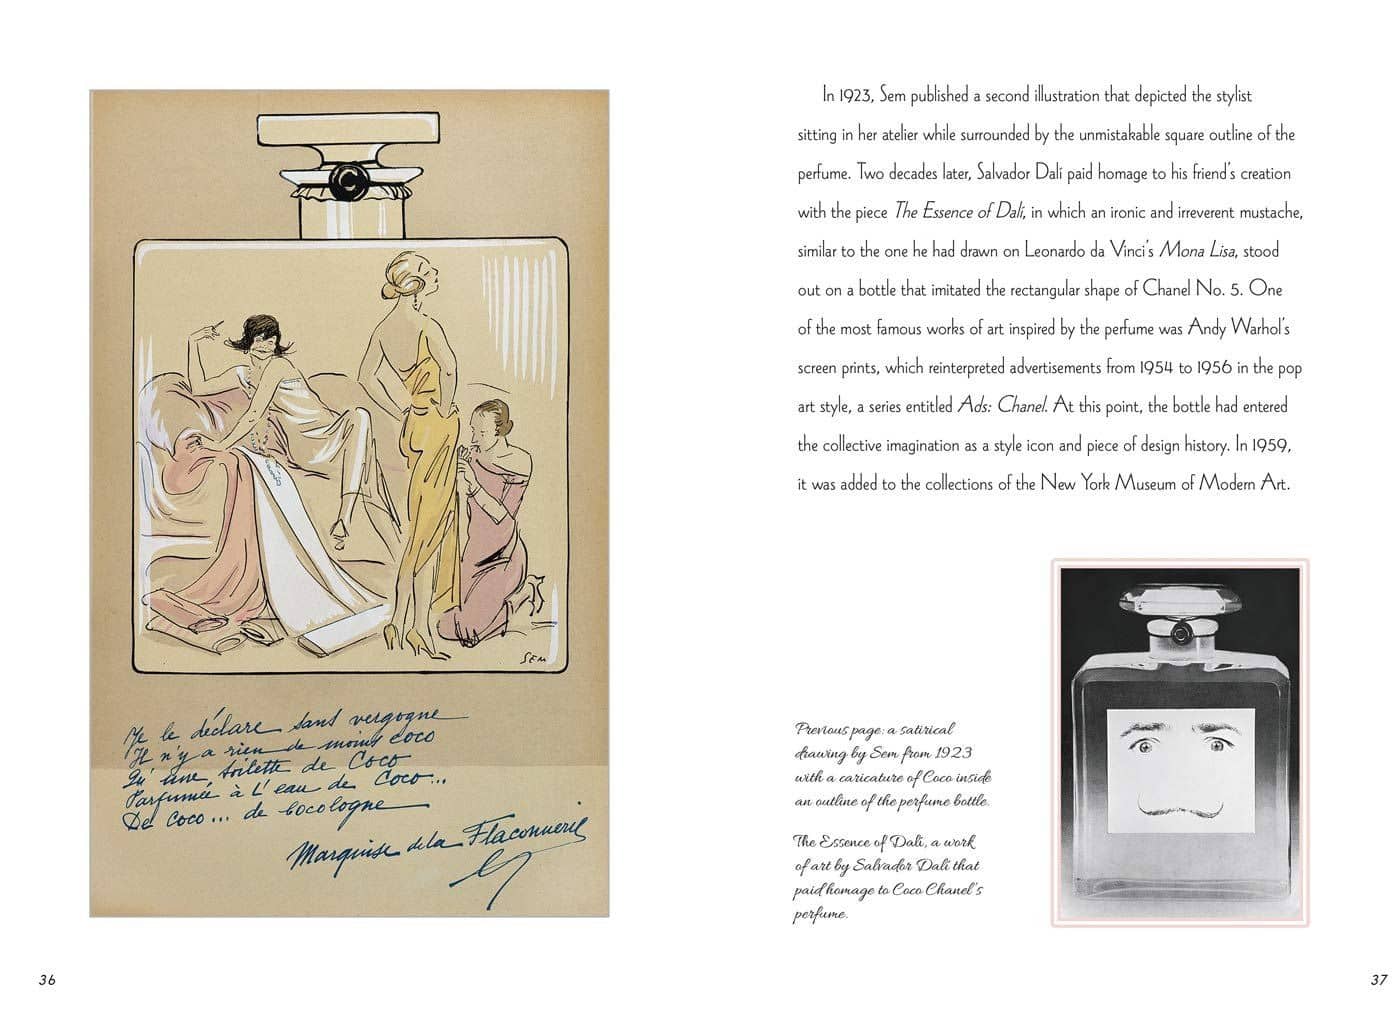 C
SEM
Je le déclare sans vergogne
Il n'y a rien de moins coco
Qu'une toilette de Coco
Parfumée à l'eau de Coco...
De Coco... de Cocologne
Marquise de la Flaconnerie
36
In 1923, Sem published a second illustration that depicted the stylist
sitting in her atelier while surrounded by the unmistakable square outline of the
perfume. Two decades later, Salvador Dalí paid homage to his friend's creation
with the piece The Essence of Dalí, in which an ironic and irreverent mustache,
similar to the one he had drawn on Leonardo da Vinci's Mona Lisa, stood
out on a bottle that imitated the rectangular shape of Chanel No. 5. One
of the most famous works of art inspired by the perfume was Andy Warhol's
screen prints, which reinterpreted advertisements from 1954 to 1956 in the pop
art style, a series entitled Ads: Chanel. At this point, the bottle had entered
the collective imagination as a style icon and piece of design history. In 1959,
it was added to the collections of the New York Museum of Modern Art.
Previous page: a satirical
drawing by Sem from 1923
with a caricature of Coco inside
an outline of the perfume bottle.
The Essence of Dalí, a work
of art by Salvador Dalí that
paid homage to Coco Chanel's
perfume.
37